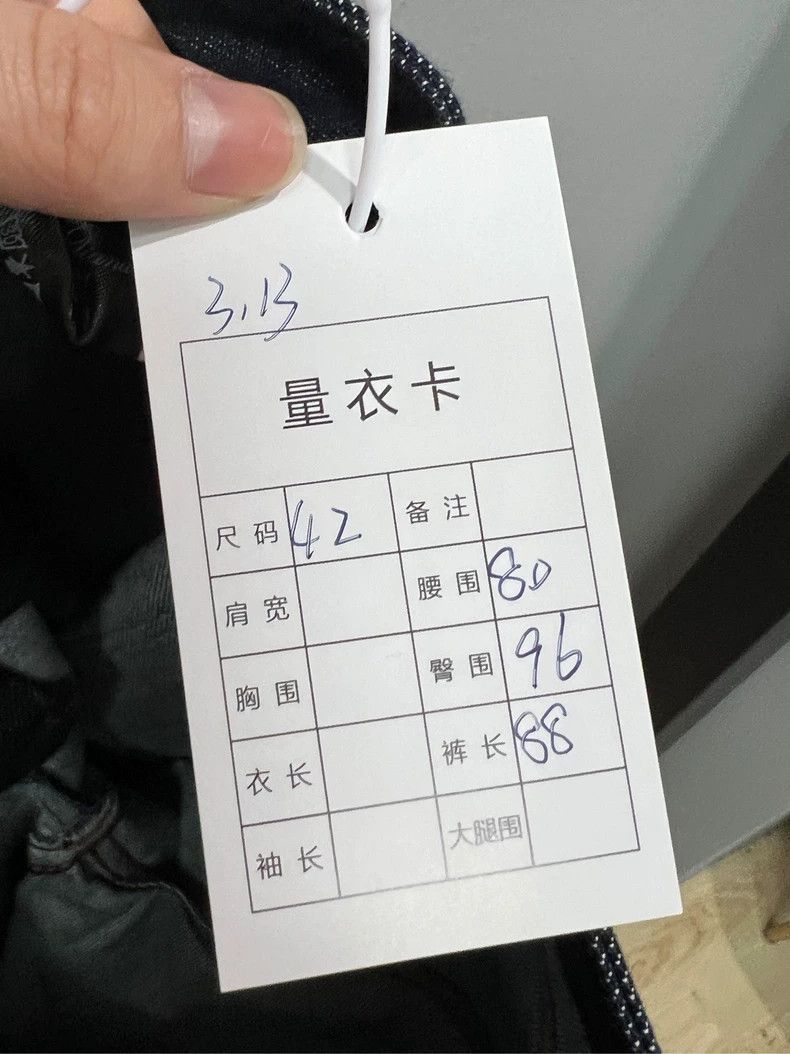 3.13
量衣卡
尺码 42 备注
肩宽 腰围 80
胸围 臀围 96
衣长 裤长 88
袖长 大腿围